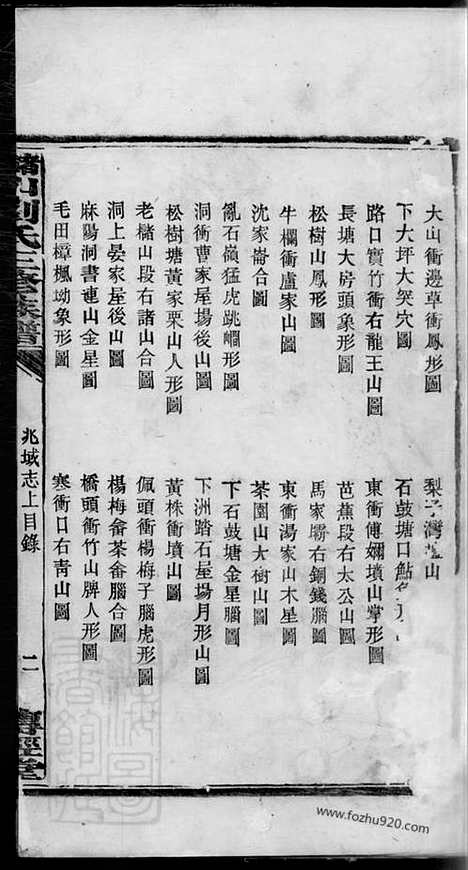 大山衝邊草衝鳳形圖
梨子灣
山
下大坪大突穴圖
石鼓塘口鮎
路口實竹衝右龍王山圖
東衝傅嫻墳山掌形圖
長塘大房頭象形圖
芭蕉段右太公山圖
松樹山鳳形圖
馬家壩右銅錢腦圖
牛欄衝盧家山圖
東衝湯家山木星圖
沈家崙合圖
茶園山大樹山圖
亂石嶺猛虎跳澗形圖
下石鼓塘金星腦圖
洞衝曹家屋場後山圖
下洲踏石屋場月形山圖
松樹塘黃家栗山人形圖
黃株衝墳山圖
老櫧山段右諸山合圖
佩頭衝楊梅子腦虎形圖
洞上晏家屋後山圖
楊梅畲茶畲腦合圖
麻陽洞書連山金星圖
橋頭衝竹山牌人形圖
毛田樟楓坳象形圖
寒衝口右青山圖
劉氏三修族譜
兆域志上目錄
二
尊經堂
www.fozhu920.com